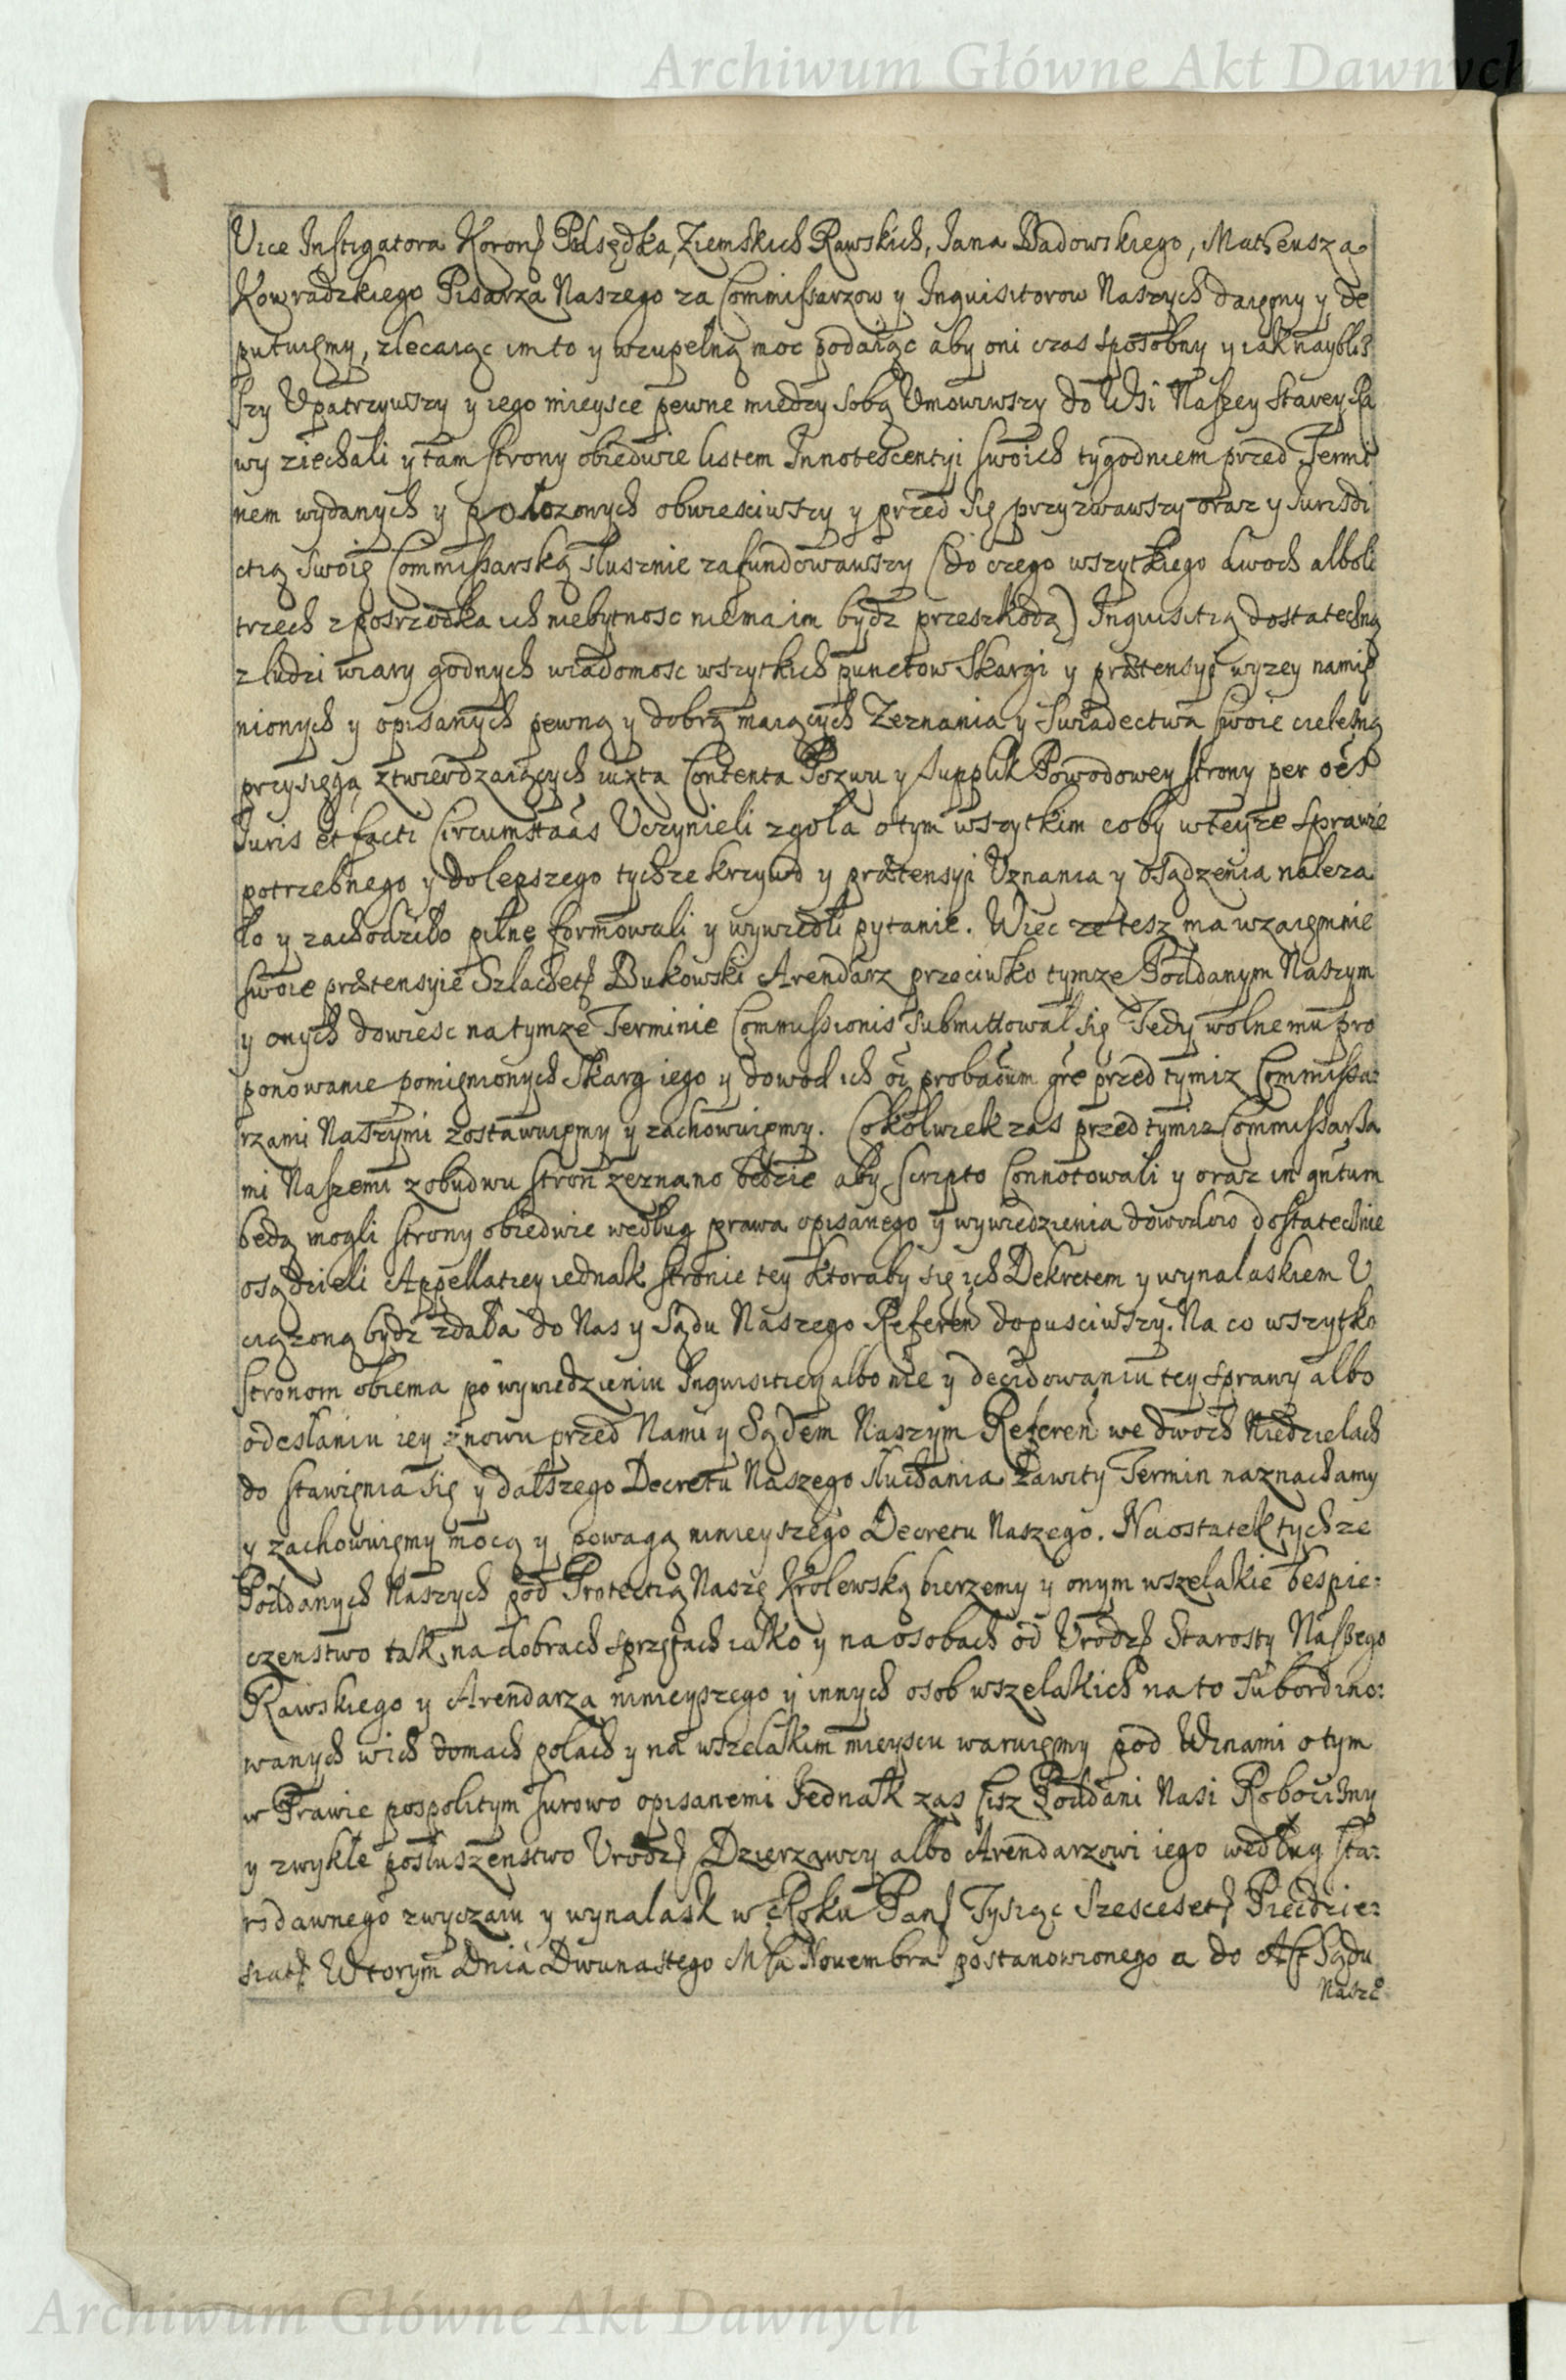 Archiwum Główne Akt Dawnych
Vice Instigatora Koron Podsędka Ziemskich Rawskich, Jana Badowskiego, Matheusza
Kowradzkiego Pisarza Naszego za Commissarzow y Inquisitorow Naszych daięmy y de
putuięmy, zlecaiąc im to y wzupełną moc podaiąc aby oni czas sposobny y iak naybliz
szy Upatrzywszy y iego mieysce pewne miedzy sobą Umowiwszy do Wsi Naszey Starey Ra
wy ziechali y tam strony obiedwie listem Innotescentyi swoich tygodniem przed Termi
nem wydanych y polozonych obwiesciwszy y przed się przyzwawszy oraz y Jurisdi
ctią swoię Commissarską słusznie zafundowawszy (do czego wszytkiego dwoch alboli
trzech z posrzodka ich niebytnosc niema im bydz przeszkodą) Inquisitią dostateczną
z ludzi wiary godnych wiadomosc wszytkich punctow Skargi y prætensyi wyzey namię
nionych y opisanych pewną y dobrą maiących Zeznania y Swiadectwa swoie cielesną
przysięgą ztwierdzaiących iuxta Contenta Pozwu y Supplik Powodowey strony per oēs
Juris et facti Circumstaās Uczynieli zgoła o tym wszytkim coby wteyze sprawie
potrzebnego y dolepszego tychze krzywd y prætensyi Uznania y osądzenia naleza
ło y zachodziło pilne formowali y wywiedli pytanie. Więc ze tesz ma wzaięmnie
swoie prætensyie Szlachet Bukowski Arendarz przeciwko tymze Poddanym Naszym
y onych dowiesc na tymze Terminie Commissionis submittował się Tedy wolne mu pro
ponowanie pomięnionych Skarg iego y dowod ich oī probaōum gre przed tymiz Commissa:
rzami Naszymi zostawuięmy y zachowuięmy. Cokolwiek zas przed tymiz Commissarza
mi Naszemi zobudwu stron zeznano bedzie aby scripto Connotowali y oraz in qntum
bedą mogli strony obiedwie według prawa opisanego y wywiedzienia dowodow dostatecznie
osądzieli Appellatiey iednak stronie tey ktoraby się ich Dekretem y wynalaskiem U
ciązoną bydz zdała do Nas y Sądu Naszego Referen dopusciwszy. Na co wszytko
stronom obiema po wywiedzieniu Inquisitiey albo nie y decidowaniu tey sprawy albo
odesłaniu iey znowu przed Nami y Sądem Naszym Referen we dwoch Niedzielach
do stawięnia się y dalszego Decretu Naszego słuchania Zawity Termin naznachamy
y zachowuięmy mocą y powagą ninieyszego Decretu Naszego. Naostatek tychze
Poddanych Naszych pod Protectią Naszę Krolewską bierzemy y onym wszelakie bespie:
czenstwo tak na dobrach sprzętach iako y na osobach od Urodz Starosty Naszego
Rawskiego y Arendarza ninieyszego y innych osob wszelakich na to subordino:
wanych wich domach polach y na wszelakim mieyscu waruięmy pod Winami o tym
w Prawie pospolitym surowo opisanemi Jednak zas cisz Poddani Nasi Robocizny
y zwykłe posłuszenstwo Urodz Dzierzawcy albo Arendarzowi iego według sta:
rodawnego zwyczaiu y wynalask w Roku Pan Tysiąc Szescset Piecdzie:
siat Wtorym Dnia Dwunastego Msa Novembra postanowionego a do Ass Sądu
Nasze
Archiwum Główne Akt Dawnych